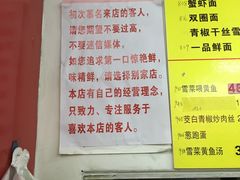 初次慕名来店的客人,
请您期望不要过高,
不要迷信媒体,
如您追求第一口惊艳鲜,
味精鲜,请选择别家店。
本店有自己的经营理念,
只致力、专注服务于
喜欢本店的客人。
蟹虾面
双圈面
青椒干丝
一品鲜面
雪菜喂黄鱼
茭白青椒炒肉丝
葱跑面
雪菜黄鱼汤